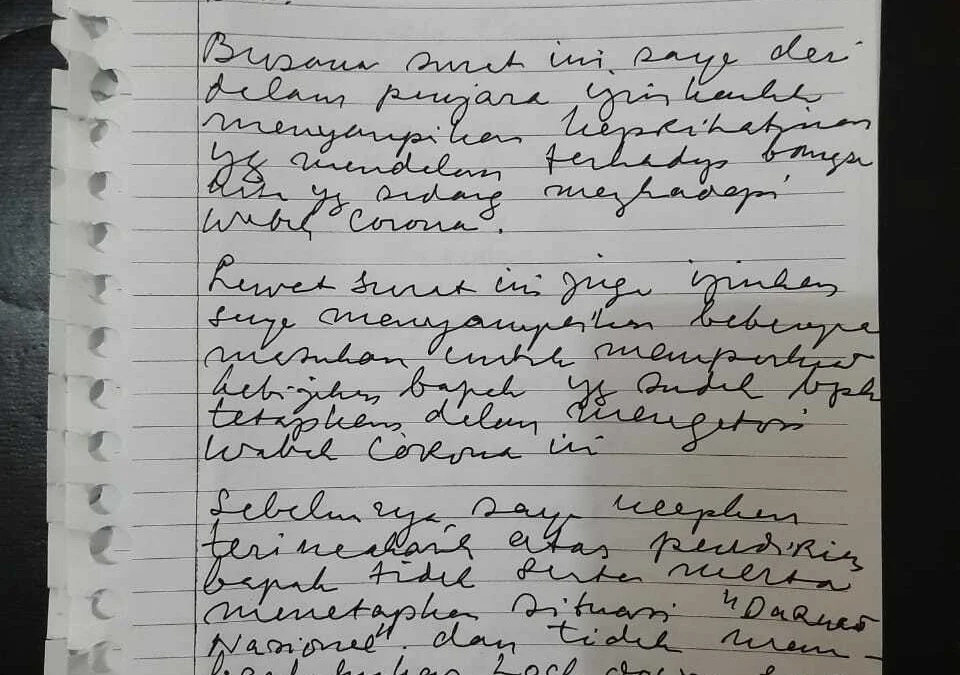 Bersama surat ini, saya dari
dalam penjara izinkanlah
menyampikan keprihatinan
yg mendalam terhadap bangsa
kita yg sedang meghadapi
wabah Corona.
Lewat surat ini juga izinkan
saya menyampaikan beberapa
masukan untuk memperkuat
kebijakan bapak yg sudah bpk
tetapkan dalam mengatasi
wabah Corona ini
Sebelumnya, saya ucapkan
terimakasih atas pendirian
bapak tidak serta merta
menetapkan situasi "Darurat
Nasional" dan tidak mem-